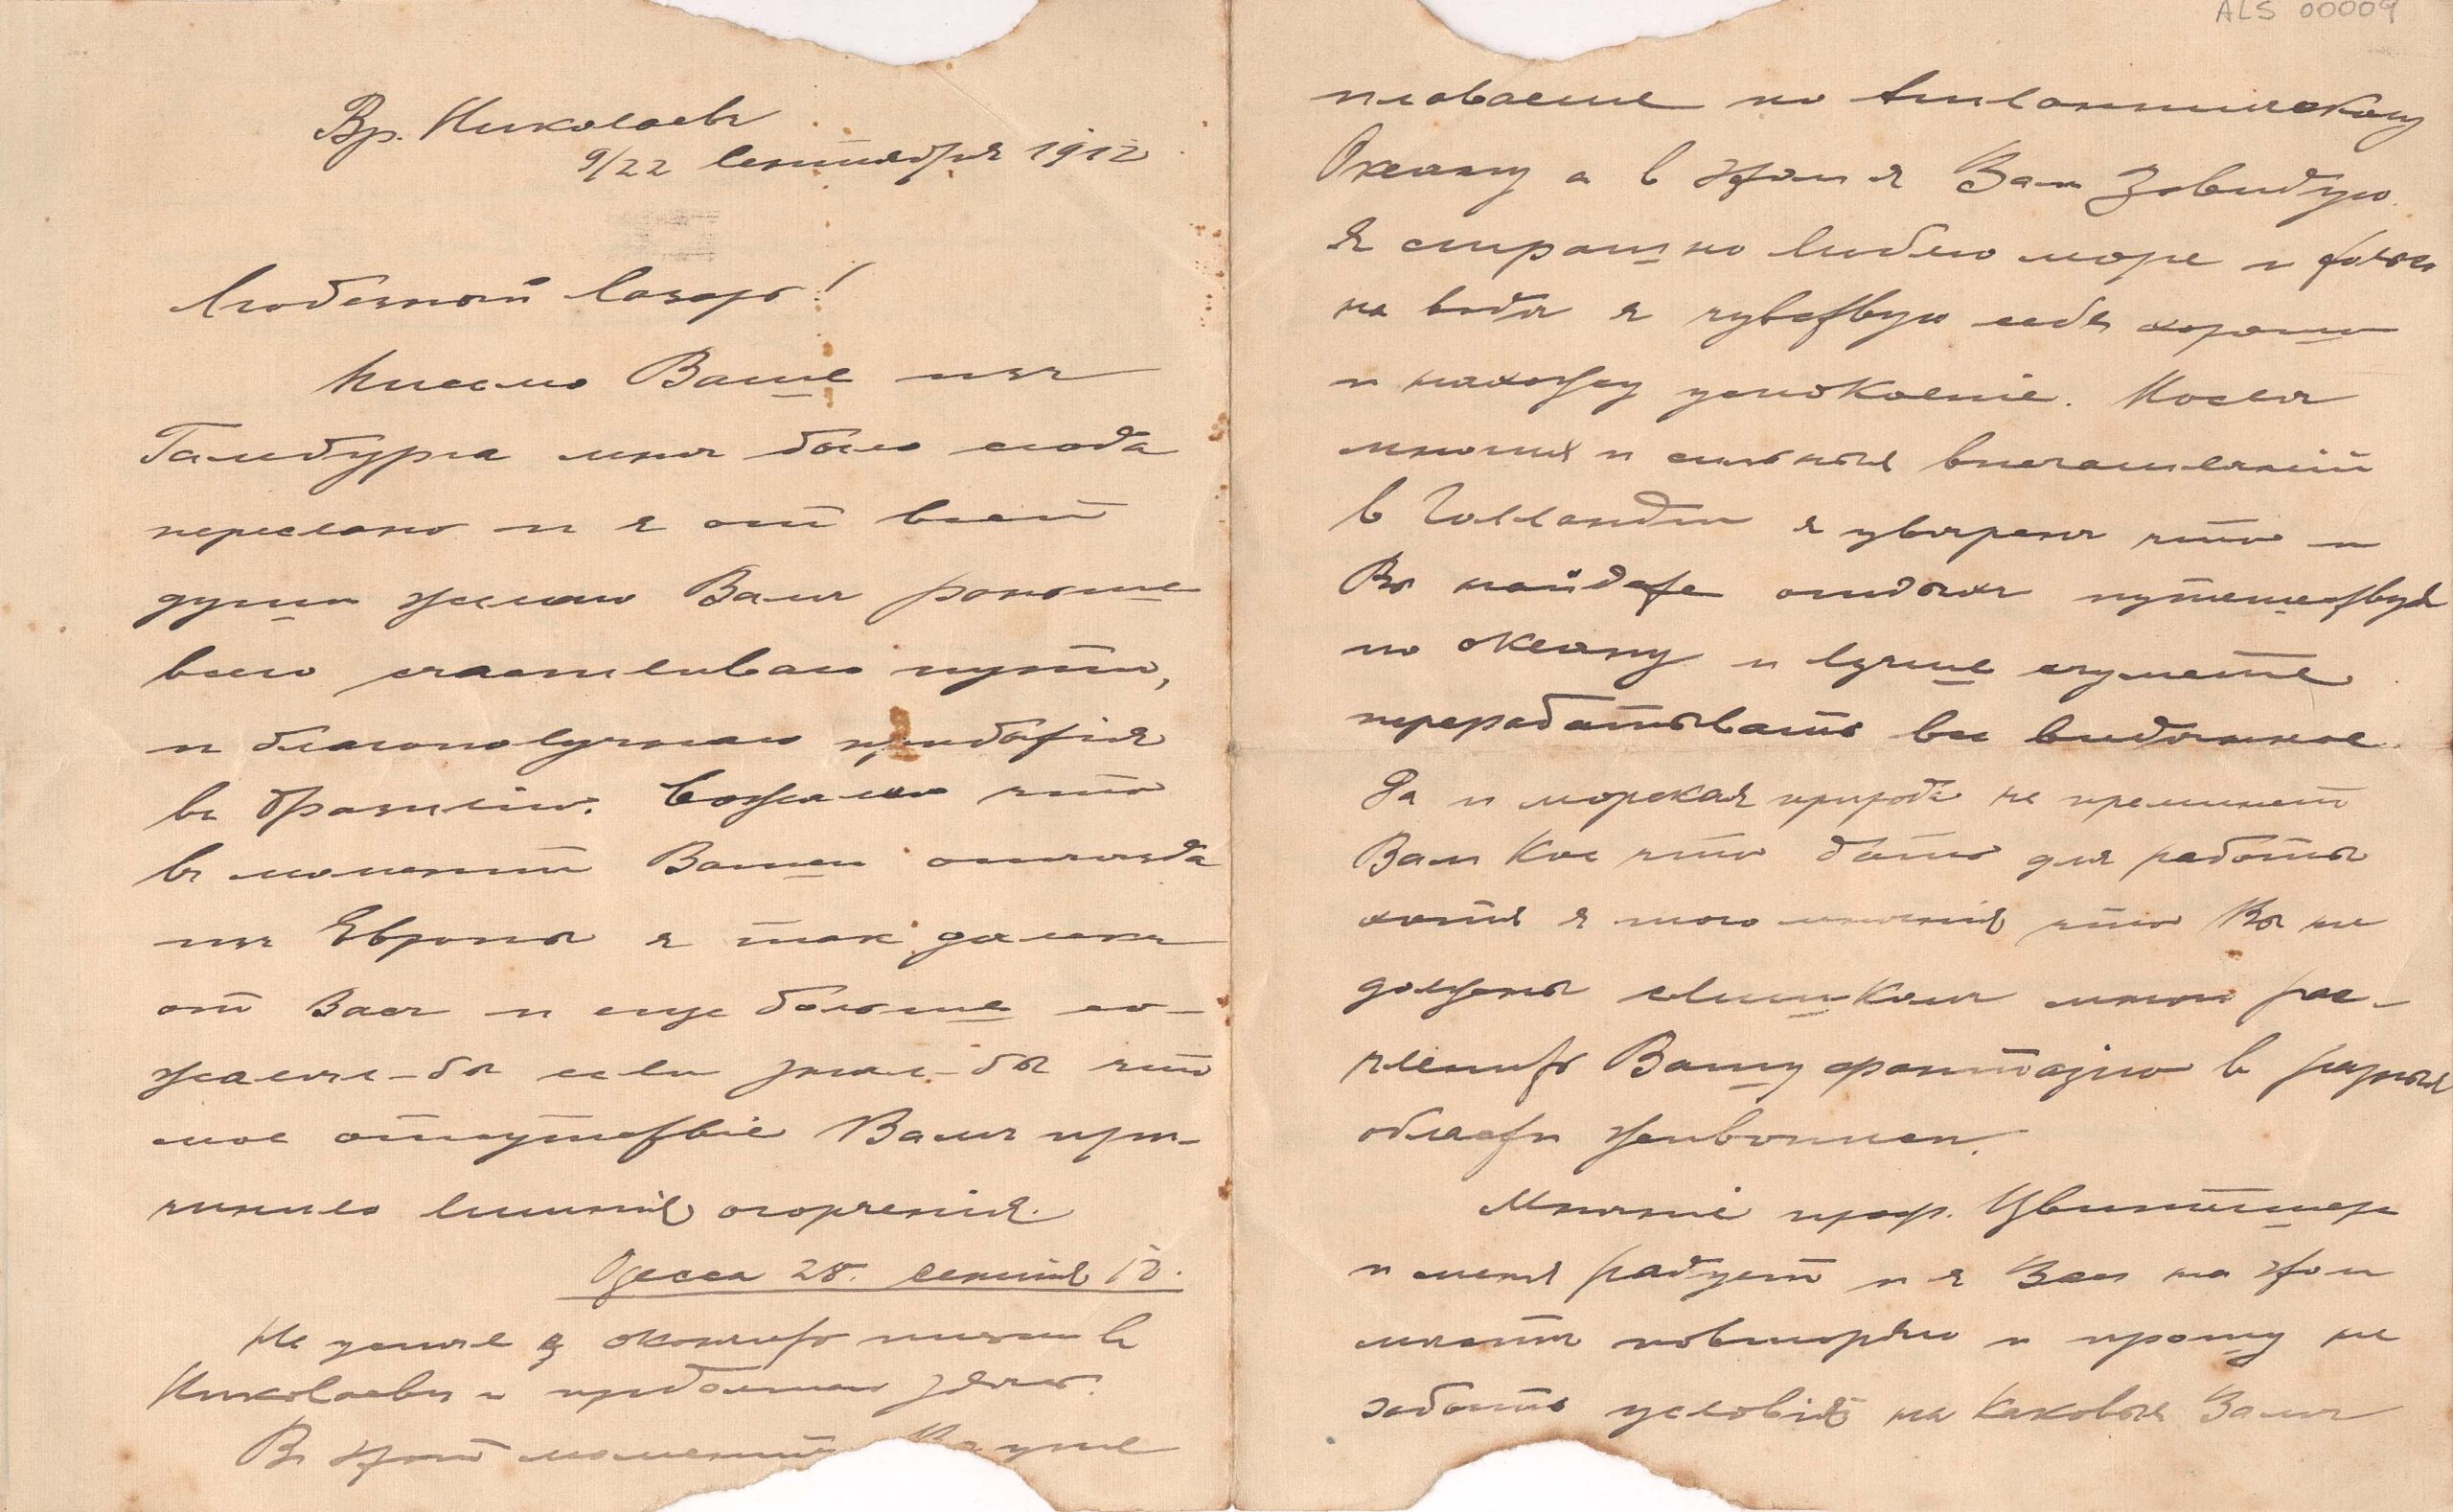 Вр. Николаевъ
9/22 Сентября 1912.
Любезный Лазарь!
Письмо Ваше изъ
Гамбурга мнѣ было сюда
переслано и я от всей
души желаю Вамъ раньше
всего счастливаго пути,
и благополучнаго прибытія
въ Бразилію. Сожалѣю что
въ моментъ Вашего отъѣзда
изъ Европы я так далекъ
от Васъ и еще больше со-
жалѣлъ-бы если зналъ-бы что
мое отсутствіе Вамъ при-
чинило лишнія огорченія.
Одесса 28. сентя 12.
Не успѣлъ я окончить письмо въ
Николаевѣ и продолжаю здѣсь.
Въ этотъ моментъ Вы уже
плаваете по Атлантическому
Океану а в этом я Вам завидую.
Я страшно люблю море и только
на водѣ я чувствую себя хорошо
и нахожу успокоеніе. Послѣ
многихъ и сильныхъ впечатлѣній
в Голландіи я увѣренъ что и
Вы найдете отдыхъ путешествуя
по океану и лучше сумеете
перерабатывать все видѣнное.
Да и морская природа не преминетъ
Вам кое что дать для работы
хотя я того мнѣнія что Вы не
должны слишкомъ много рас-
членить Вашу фантазію в разныя
области живописи.
Мнѣніе проф. Цвинтшера
и меня радуетъ и я Вам на этом
мѣстѣ повторяю и прошу не
забыть условія на каковыя Вамъ
ALS 00009